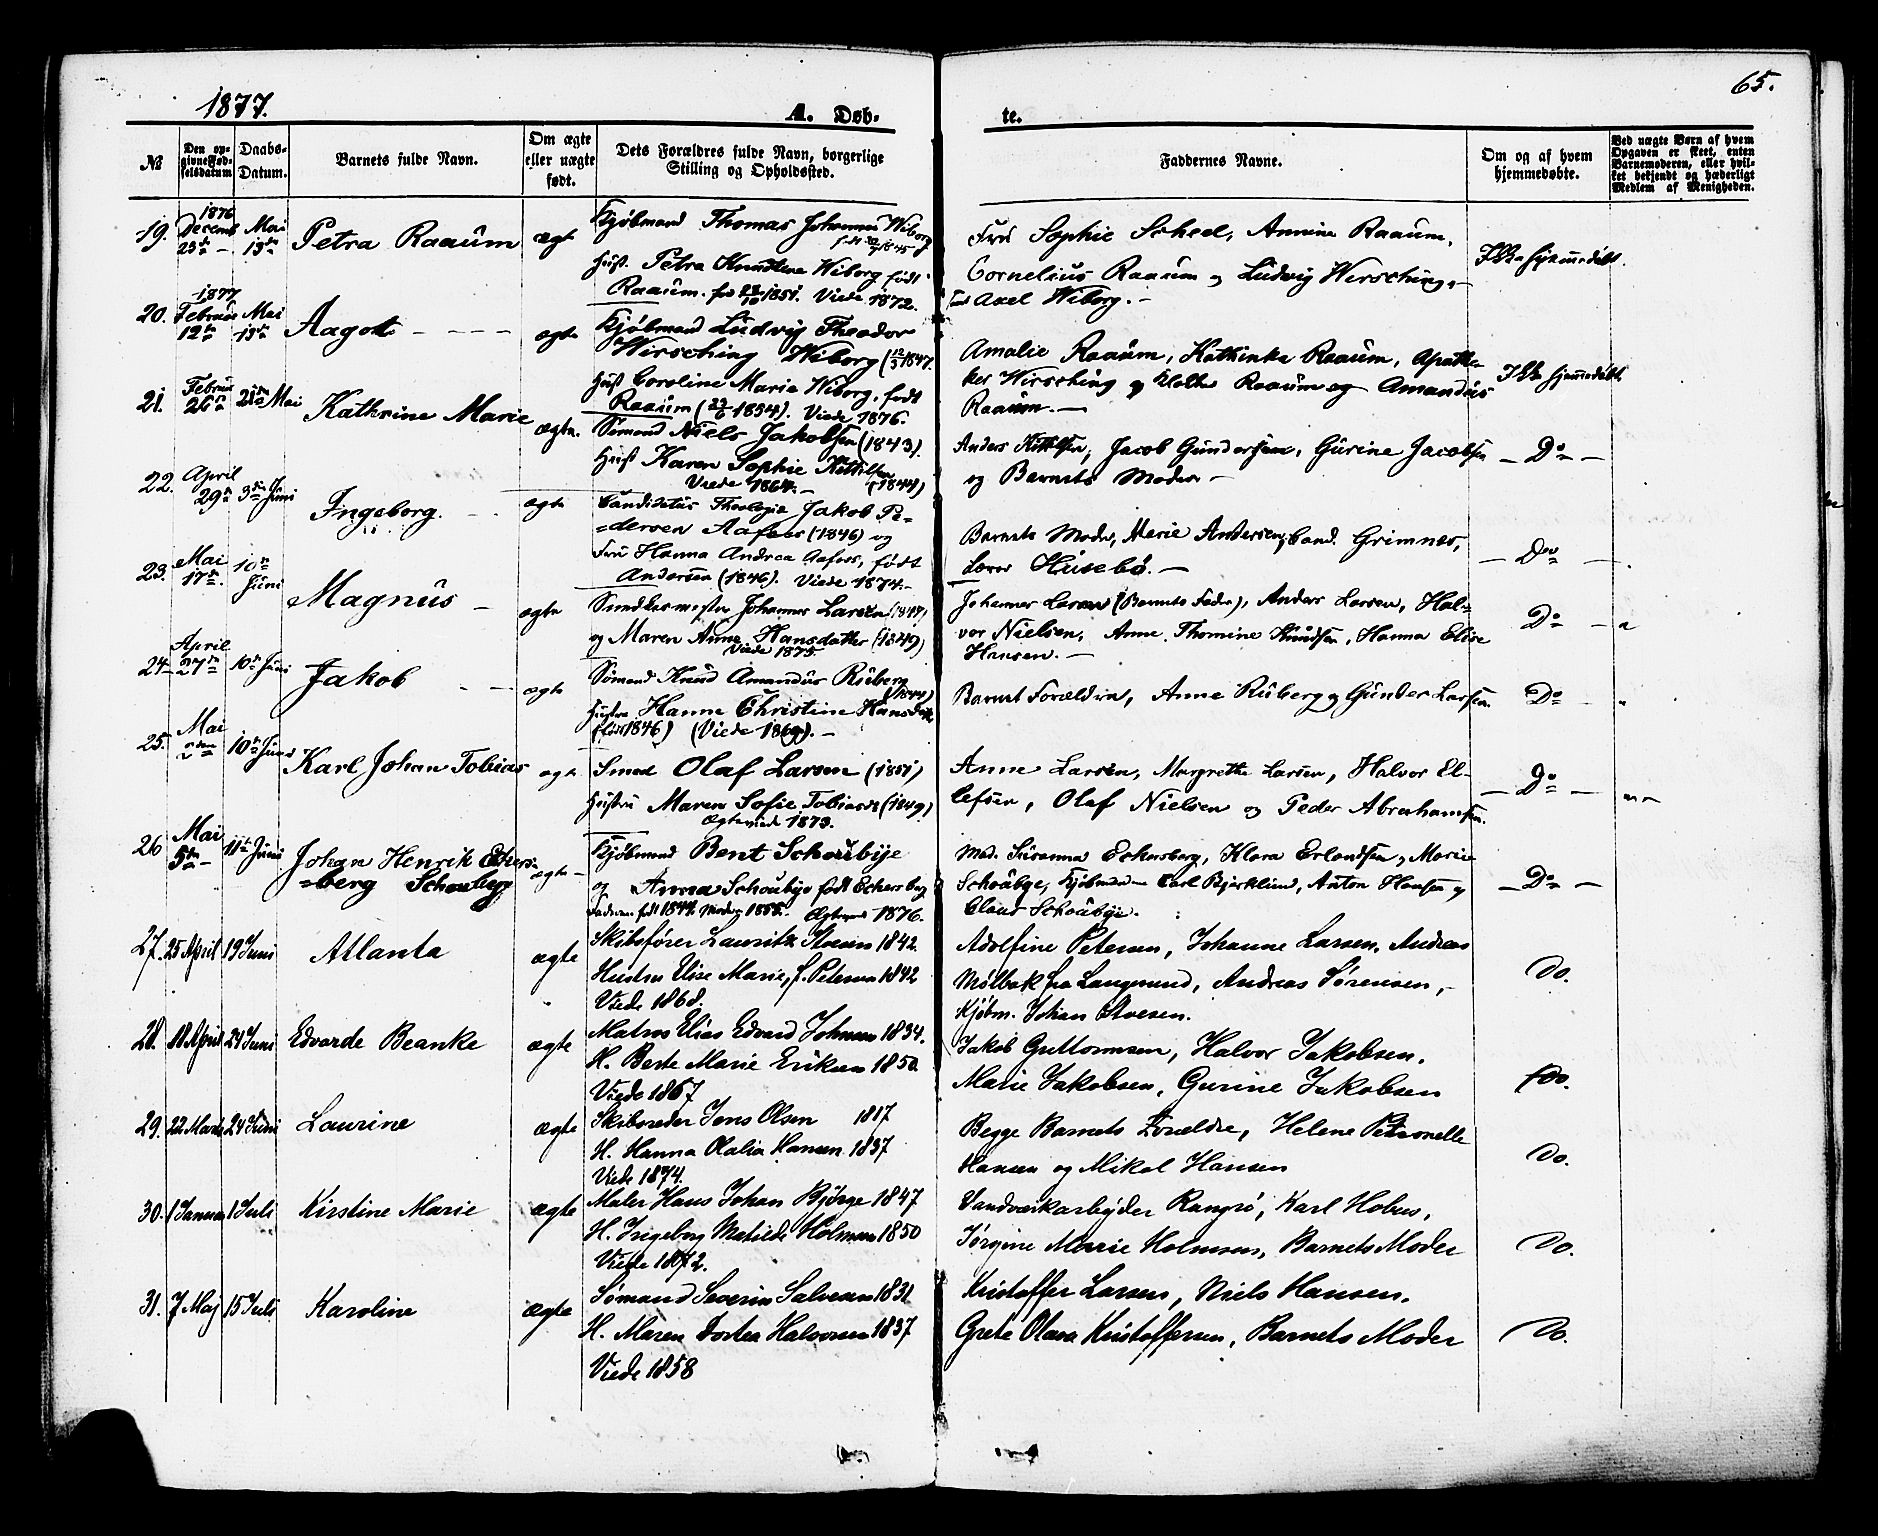 1877.
A. Døb-
te.
65.
№
Den op-
givne Fød-
selsdatum
Daabs-
Datum.
Barnets fulde Navn.
Om ægte
eller uægte
født.
Dets Forældres fulde Navn, borgerlige
Stilling og Opholdssted.
Faddernes Navne.
Om og af hvem
hjemmedøbte.
Ved uægte Børn af hvem
Opgaven er skeet, enten
Barnemoderen, eller hvil-
ket bekjendt og hæderligt
Medlem af Menigheden.
19.
1876
Decemb
23de
Mai
13de
Petra Raaum
ægte
Kjøbmand Thomas Johannes Wiborg
Hust. Petra Knudtine Wiborg født
Raaum. 1851. Viede 1872.
Fru Sophie Scheel, Annine Raaum,
Cornelius Raaum og Ludvig Wirsching
Axel Wiborg.
Ikke hjemmedøbt.
20.
1877
Februar
12te
Mai
13de
Aagot
ægte
Kjøbmand Ludvig Theodor
Wirsching Wiborg (12/3 1847.
Hust Caroline Marie Wiborg, født
Raaum (1854). Viede 1876.
Amalie Raaum, Kathinka Raaum, Apothe-
ker Wirsching og Raaum og Amandus
Raaum.
Ikke hjemmedøbt.
21.
Februar
26de
21de Mai
Kathrine Marie
ægte.
Sømand Niels Jakobsen (1843).
Hust Karen Sophie Kittilsen
Viede 1864. (1844)
Anders Kittilsen, Jacob Gundersen, Gurine Jacobsen
og Barnets Moder.
Do
22.
April
29de
3de Juni
Ingeborg.
ægte
Candidatus Theologie Jakob Pe-
dersen Aafoss (1846) og
Fru Hanna Andrea Aafoss, født
Andersen (1846). Viede 1874.
Barnets Moder, Marie Andersen, Cand. Grimnes,
Lærer Husebø.
Do
23.
Mai
17de
10de
Juni
Magnus
ægte
Johannes Larsen (1847)
og Maren Anne Hansdatter (1849)
Viede 1875.
Johannes Larsen (Barnets Fader), Anders Larsen, Hal-
vor Nielsen, Anne Thomine Knudsen, Hanna Elise
Hansen.
Do
24.
April
27de
10de Juni
Jakob
ægte
Sømand Knud Amandus Ruberg
Hustru Hanne Christine Hansdtr
(født 1846) (Viede 1869).
Barnet Forældre, Anne Ruberg og Gunder Larsen.
Do
25.
Mai
10de Juni
Karl Johan Tobias
ægte
Smed Olaf Larsen (1851)
Hustru Maren Sofie Tobiasdtr (1849)
Ægteviede 1873.
Anne Larsen, Margrethe Larsen, Halvor El-
lefsen, Olaf Nielsen og Peder Abrahamsen.
Do
26
Mai
5te
11te Juni
Johan Henrik Eckers-
berg Schoubye
ægte
Kjøbmand Bent Schoubye
og Anna Schoubye født Eckersberg
Faderen født 1847. Moder 1855. 1876.
Mad. Susanna Eckersberg, Klara Erlandsen, Marie
Schoubye, Kjøbmænd Carl Bjørklund, Anton Hansen og
Claus Schoubye.
Do
27.
25 April
19 Juni
Atlanta
ægte
Skibsfører Lauritz Stoesen 1842.
Hustru Elise Marie, f. Petersen 1842
Viede 1868.
Adolfine Petersen, Johanne Larsen, Andreas
Mølbak fra Langesund, Andreas Sørensen,
Kjøbm. Johan Stoesen.
Do.
28.
18 April
24 Juni
Edvarde Beanke
ægte
Matros Elias Edvard Johnsen 1834.
H. Berte Marie Eriksen 1850.
Viede 1867
Jakob Guttormsen, Halvor Jakobsen.
Marie Jakobsen, Gurine Jakobsen
Do.
29.
22 Marts
24 Juni
Laurine
ægte
Skibsreder Jens Olsen 1817
H. Hanna Olalia Hansen 1837
Viede 1874.
Begge Barnets Forældre, Helene Petronelle
Hansen og Mikal Hansen
Do.
30.
1 Januar
1 Juli
Kirstine Marie
ægte
Maler Hans Johan Bjørge 1847
H. Ingeborg Matilde Holmsen 1850
Viede 1872.
Vandværksarbeyder Rangsø, Karl Hobus,
Jørgine Marie Holmsen, Barnets Moder
Do.
31.
7 Maj
15 Juli
Karoline
ægte
Sømand Severin Salvesen 1831
H. Maren Dortea Halvorsen 1837
Viede 1858
Kristoffer Larsen, Niels Hansen.
Grete Olava Kristoffersen, Barnets Moder
Do.